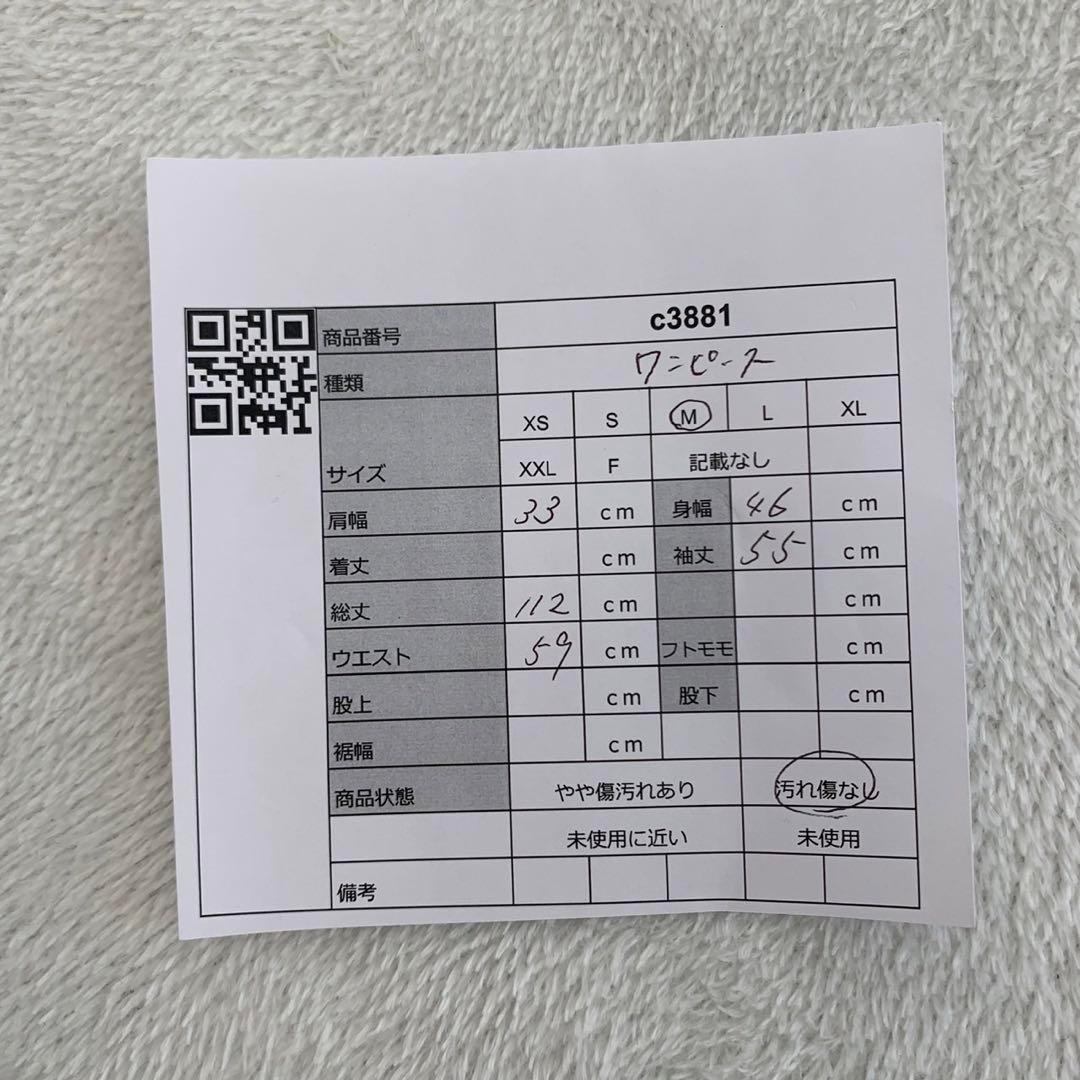 商品番号 c3881
種類 ワンピース
XS S M L XL
サイズ XXL F 記載なし
肩幅 33 cm 身幅 46 cm
着丈 cm 袖丈 55 cm
総丈 112 cm cm
ウエスト 59 cm フトモモ cm
股上 cm 股下 cm
裾幅 cm
商品状態 やや傷汚れあり 汚れ傷なし
未使用に近い 未使用
備考